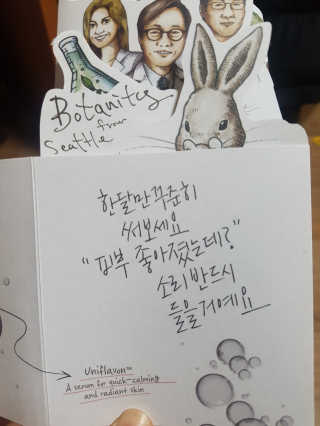 Botanitcy
from
Seattle
한달만 꾸준히
써보세요
"피부 좋아졌는데?"
소리 반드시
들을거예요
Uniflavon™
A serum for quick-calming
and radiant skin